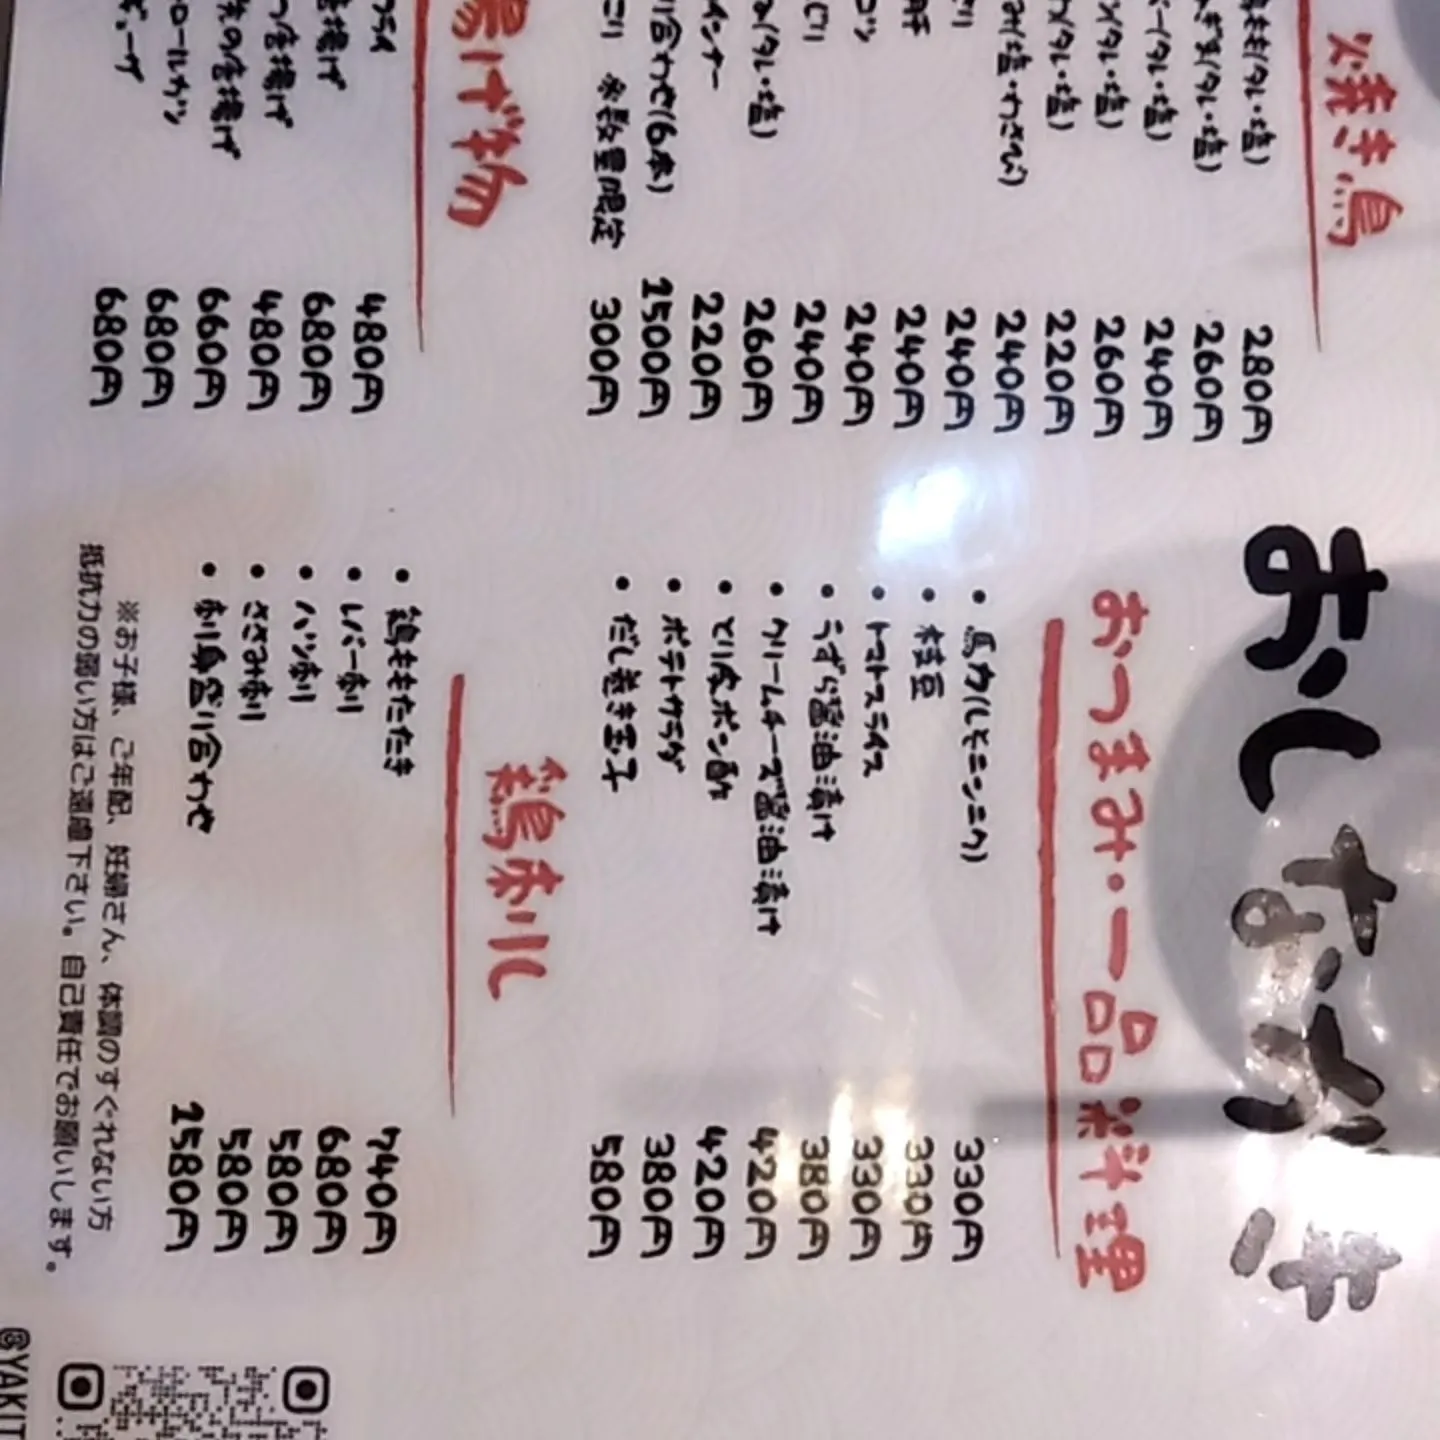 おしながき
焼き鳥
もも(タレ・塩) 280円
ぎま(タレ・塩) 260円
バー(タレ・塩) 240円
(タレ・塩) 260円
(タレ・塩) 220円
み(塩・わさび) 240円
240円
肝 240円
コツ 240円
240円
(タレ・塩) 260円
インナー 220円
り合わせ(6本) 1500円
※数量限定 300円
揚げ物
フライ 480円
唐揚げ 680円
つ唐揚げ 480円
先の唐揚げ 660円
ロールカツ 680円
ボーザ 680円
おつまみ・一品料理
・馬力(しそニンニク) 330円
・枝豆 330円
・トマトスライス 330円
・うずら醤油漬け 380円
・クリームチーズ醤油漬け 420円
・とり皮ポン酢 420円
・ポテトサラダ 380円
・だし巻き玉子 580円
鶏刺し
・鶏ももたたき 740円
・レバー刺 680円
・ハツ刺 580円
・ささみ刺 580円
・刺身盛り合わせ 1580円
※お子様、ご年配、妊婦さん、体調のすぐれない方
抵抗力の弱い方はご遠慮下さい。自己責任でお願いします。
@YAKIT